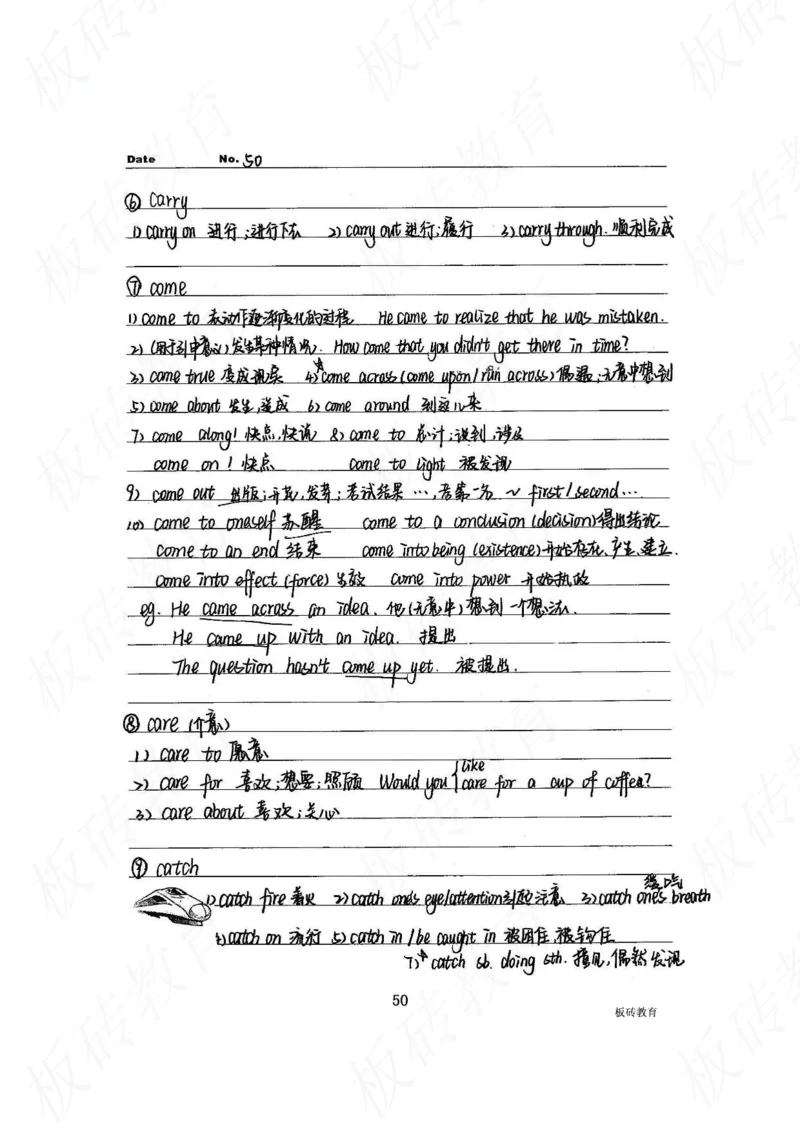 Date No. 50
⑥ carry
1) carry on 进行;进行下去 2) carry out 进行;履行 3) carry through. 顺利完成
⑦ come
1) come to 表动作逐渐变化的过程 He came to realize that he was mistaken.
2) (用于引申意义)发生某种情况). How come that you didn't get there in time?
3) come true 变成现实 4)☆come across (come upon / run across) 偶遇;无意中想到
5) come about 发生,造成 6) come around 到这儿来
7) come along! 快点,快说 8) come to 总计;谈到,涉及
come on ! 快点 come to light 被发现
9) come out 出版;开花,发芽;考试结果…,考第一名 ~ first / second…
10) come to oneself 苏醒 come to a conclusion (decision) 得出结论
come to an end 结束 come into being (existence) 开始存在,产生,建立.
come into effect (force) 生效 come into power 开始执政
eg. He came across an idea. 他(无意中)想到一个想法.
He came up with an idea. 提出
The question hasn't come up yet. 被提出.
⑧ care (介意)
1) care to 愿意
2) care for 喜欢;想要;照顾 Would you { like
care for a cup of coffee?
3) care about 喜欢;关心
⑨ catch
1) catch fire 着火 2) catch one's eye/attention 引起注意 3) catch one's breath
4) catch on 流行 5) catch in / be caught in 被困住,被钩住
7)☆ catch sb. doing sth. 撞见,偶然发现
50
板砖教育